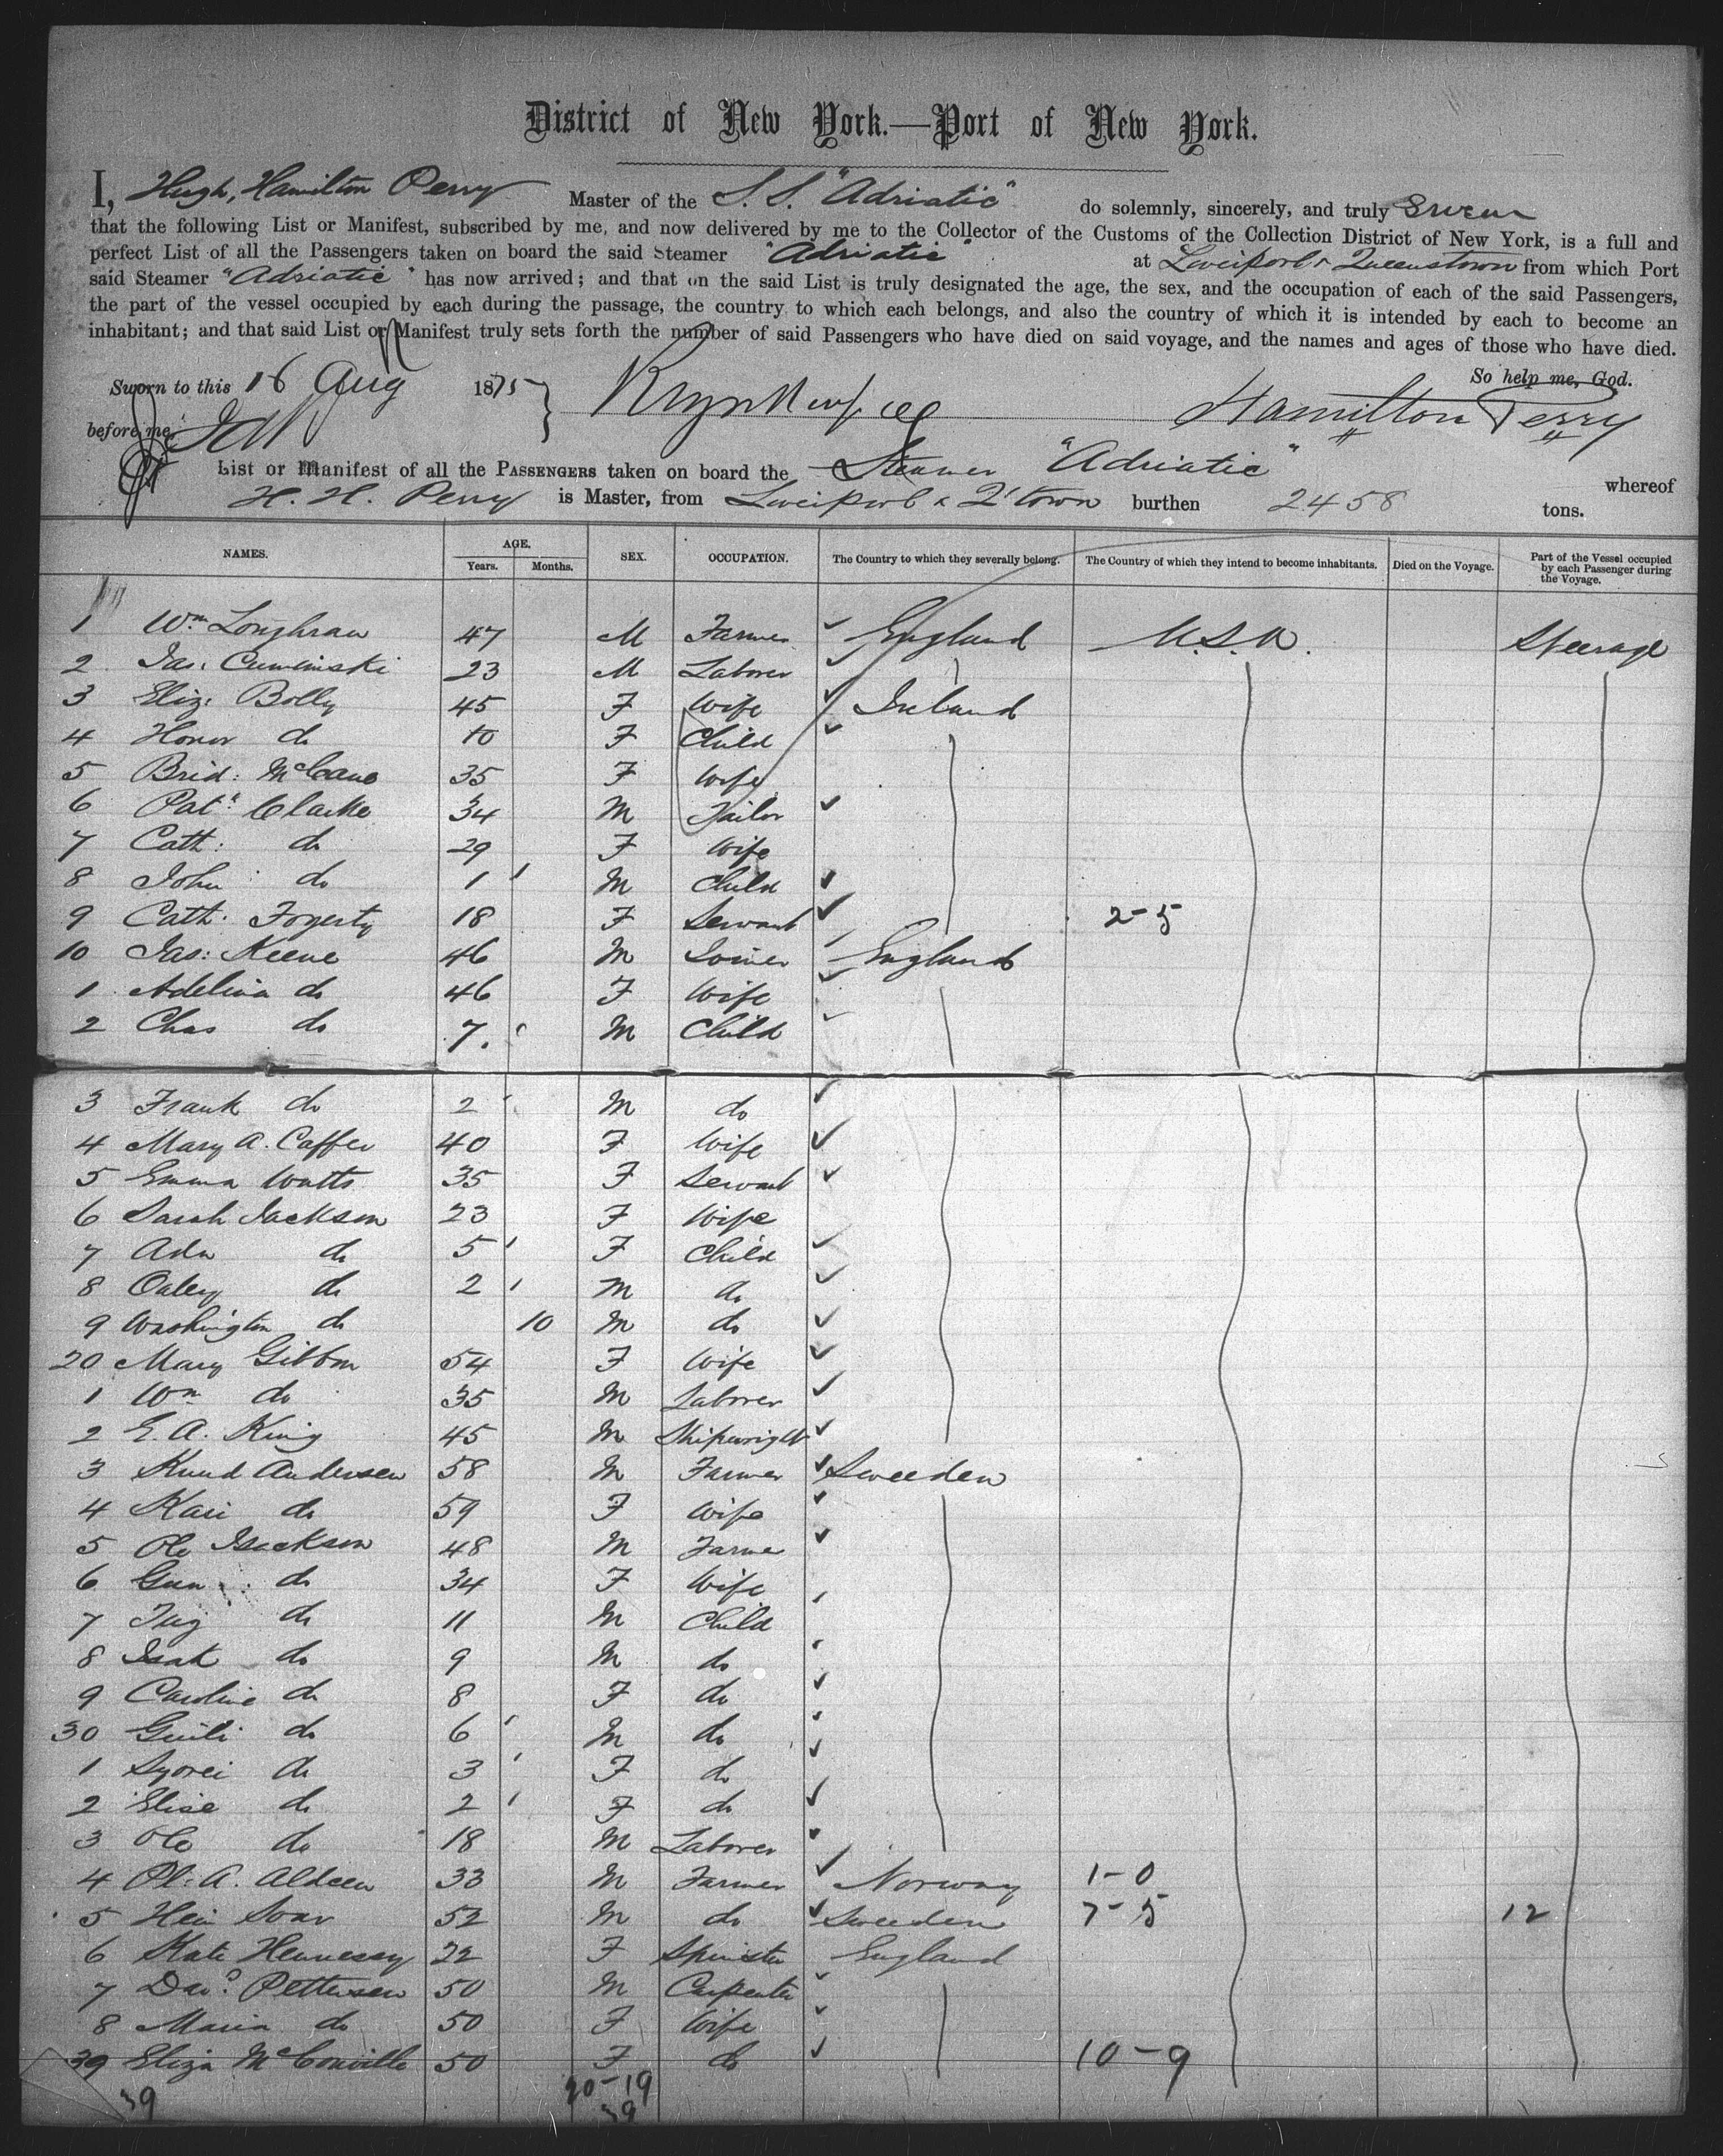 District of New York.—Port of New York.
I, Hugh, Hamilton Perry Master of the S. S. "Adriatic" do solemnly, sincerely, and truly Swear
that the following List or Manifest, subscribed by me, and now delivered by me to the Collector of the Customs of the Collection District of New York, is a full and
perfect List of all the Passengers taken on board the said Steamer "Adriatic" at Liverpool & Queenstown from which Port
said Steamer "Adriatic" has now arrived; and that on the said List is truly designated the age, the sex, and the occupation of each of the said Passengers,
the part of the vessel occupied by each during the passage, the country to which each belongs, and also the country of which it is intended by each to become an
inhabitant; and that said List or Manifest truly sets forth the number of said Passengers who have died on said voyage, and the names and ages of those who have died.
So help me, God.
Sworn to this 16 Aug 1875
before me, Hamilton Perry
List or Manifest of all the PASSENGERS taken on board the Steamer "Adriatic" whereof
H. H. Perry is Master, from Liverpool & Q'town burthen 2458 tons.
NAMES. AGE. Years. Months. SEX. OCCUPATION. The Country to which they severally belong. The Country of which they intend to become inhabitants. Died on the Voyage. Part of the Vessel occupied by each Passenger during the Voyage.
1 Wm Loughran 47 M Farmer England U.S.A. Steerage
2 Jas. Cuminski 23 M Laborer
3 Eliz: Bolly 45 F Wife Ireland
4 Honor do 10 F Child
5 Brid: McCane 35 F Wife
6 Patk Clarke 34 M Tailor
7 Cath: do 29 F Wife
8 John do 1 M Child
9 Cath: Fogerty 18 F Servant 2-5
10 Jas: Keene 46 M Joiner England
1 Adelina do 46 F Wife
2 Chas do 7. M Child
3 Frank do 2 M do
4 Mary A. Caffer 40 F Wife
5 Emma Watts 35 F Servant
6 Sarah Jackson 23 F Wife
7 Ada do 5 F Child
8 Oaley do 2 M do
9 Washington do 10 M do
20 Mary Gibbon 54 F Wife
1 Wm do 35 M Laborer
2 E. A. King 45 M Shipwright
3 Knud Andersen 58 M Farmer Sweeden
4 Kari do 59 F Wife
5 Ole Isackson 48 M Farmer
6 Gun do 34 F Wife
7 do 11 M Child
8 Isak do 9 M do
9 Caroline do 8 F do
30 do 6 M do
1 do 3 F do
2 Elise do 2 F do
3 Ole do 18 M Laborer
4 A. Aldeen 33 M Farmer Norway 1-0
5 52 M do Sweeden 7-5 12
6 Kate Hennessy 22 F Spinster England
7 Davd. Pettersen 50 M Carpenter
8 Maria do 50 F Wife
39 Eliza McConville 50 F do 10-9
39 20-19
39